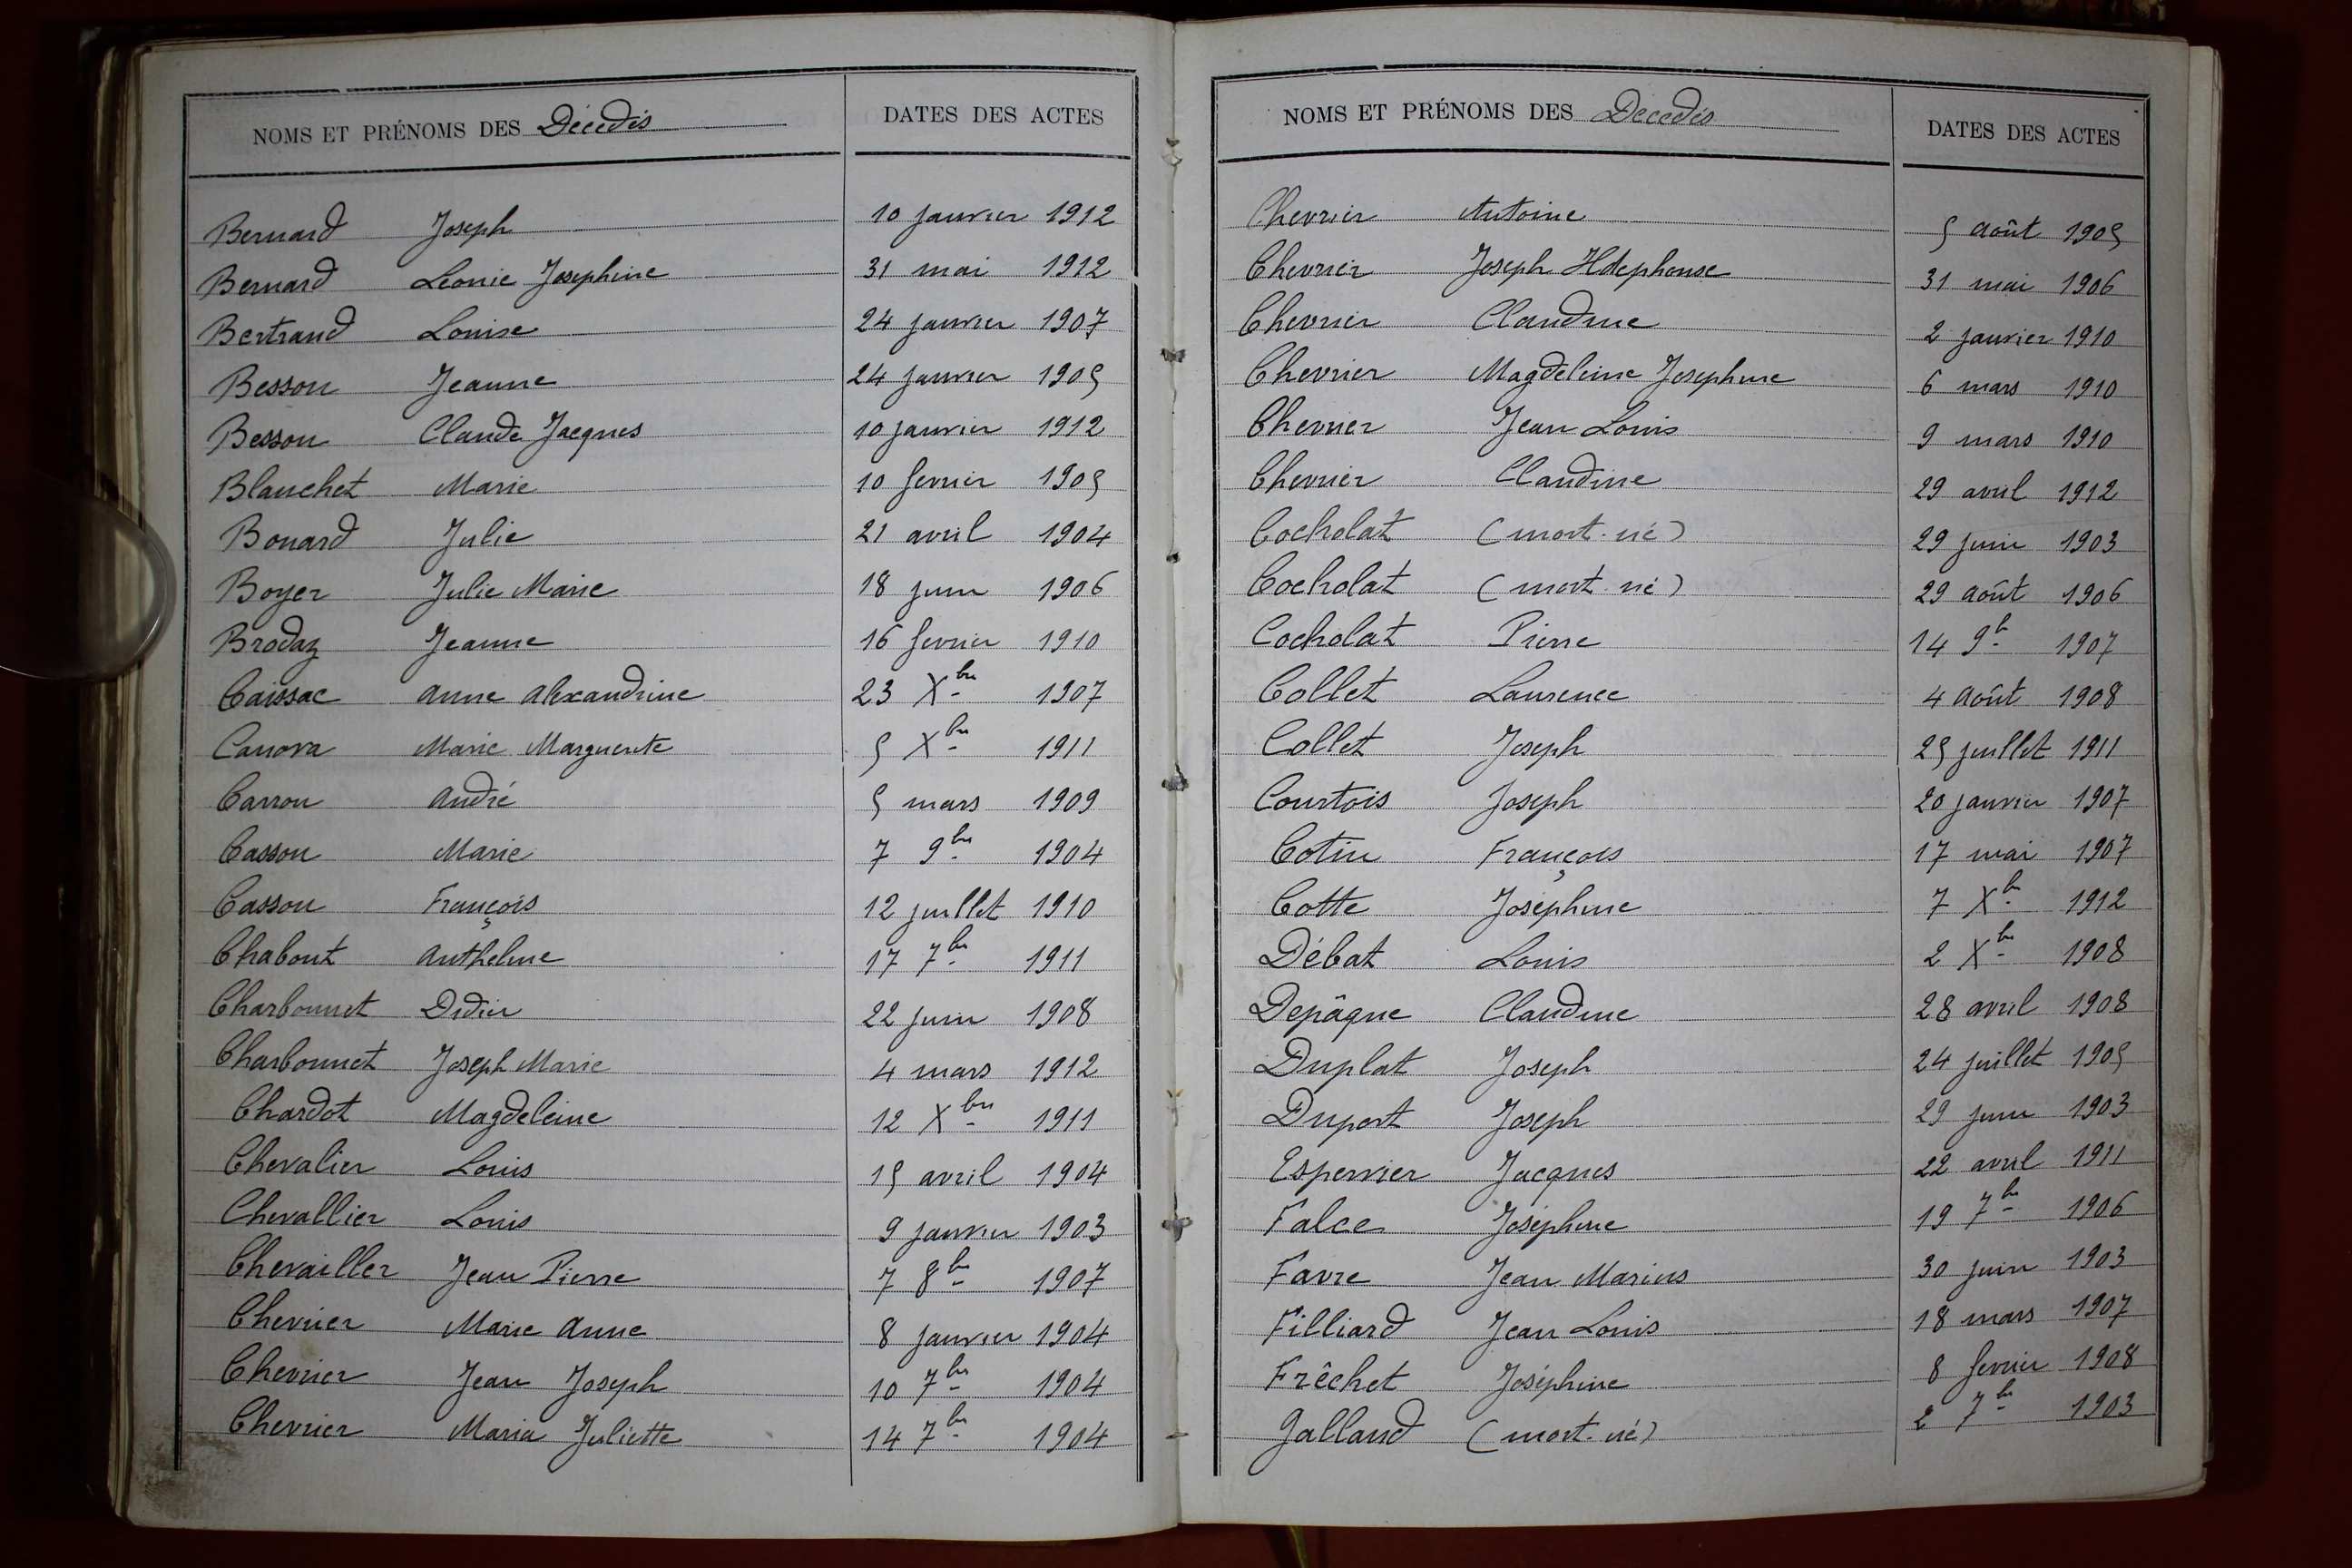 NOMS ET PRÉNOMS DES Décédés DATES DES ACTES
Bernard Joseph 10 janvier 1912
Bernard Leonie Josephine 31 mai 1912
Bertrand Louise 24 janvier 1907
Besson Jeanne 24 janvier 1905
Besson Claude Jacques 10 janvier 1912
Blanchet Marie 10 fevrier 1905
Bonard Julie 21 avril 1904
Boyer Julie Marie 18 juin 1906
Brodaz Jeanne 16 fevrier 1910
Caissac Anne Alexandrine 23 Xbre 1907
Canova Marie Marguerite 5 Xbre 1911
Carron André 5 mars 1909
Casson Marie 7 9bre 1904
Casson François 12 juillet 1910
Chabout Anthelme 17 7bre 1911
Charbonnet Didier 22 juin 1908
Charbonnet Joseph Marie 4 mars 1912
Chardot Magdeleine 12 Xbre 1911
Chevalier Louis 15 avril 1904
Chevallier Louis 9 janvier 1903
Chevailler Jean Pierre 7 8bre 1907
Chevrier Marie Anne 8 janvier 1904
Chevrier Jean Joseph 10 7bre 1904
Chevrier Maria Juliette 14 7bre 1904
NOMS ET PRÉNOMS DES Décédés DATES DES ACTES
Chevrier Antoine 5 août 1905
Chevrier Joseph Ildephonse 31 mai 1906
Chevrier Claudine 2 janvier 1910
Chevrier Magdeleine Josephine 6 mars 1910
Chevrier Jean Louis 9 mars 1910
Chevrier Claudine 29 avril 1912
Cocholat (mort-né) 29 juin 1903
Cocholat (mort-né) 29 août 1906
Cocholat Pierre 14 9b 1907
Collet Laurence 4 août 1908
Collet Joseph 25 juillet 1911
Courtois Joseph 20 janvier 1907
Cotin François 17 mai 1907
Cotte Joséphine 7 Xbre 1912
Débat Louis 2 Xbre 1908
Depâque Claudine 28 avril 1908
Duplat Joseph 24 juillet 1905
Duport Joseph 29 juin 1903
Espervier Jacques 22 avril 1911
Falce Joséphine 19 7bre 1906
Favre Jean Marius 30 juin 1903
Filliard Jean Louis 18 mars 1907
Frêchet Joséphine 8 fevrier 1908
Galland (mort-né) 2 7bre 1903